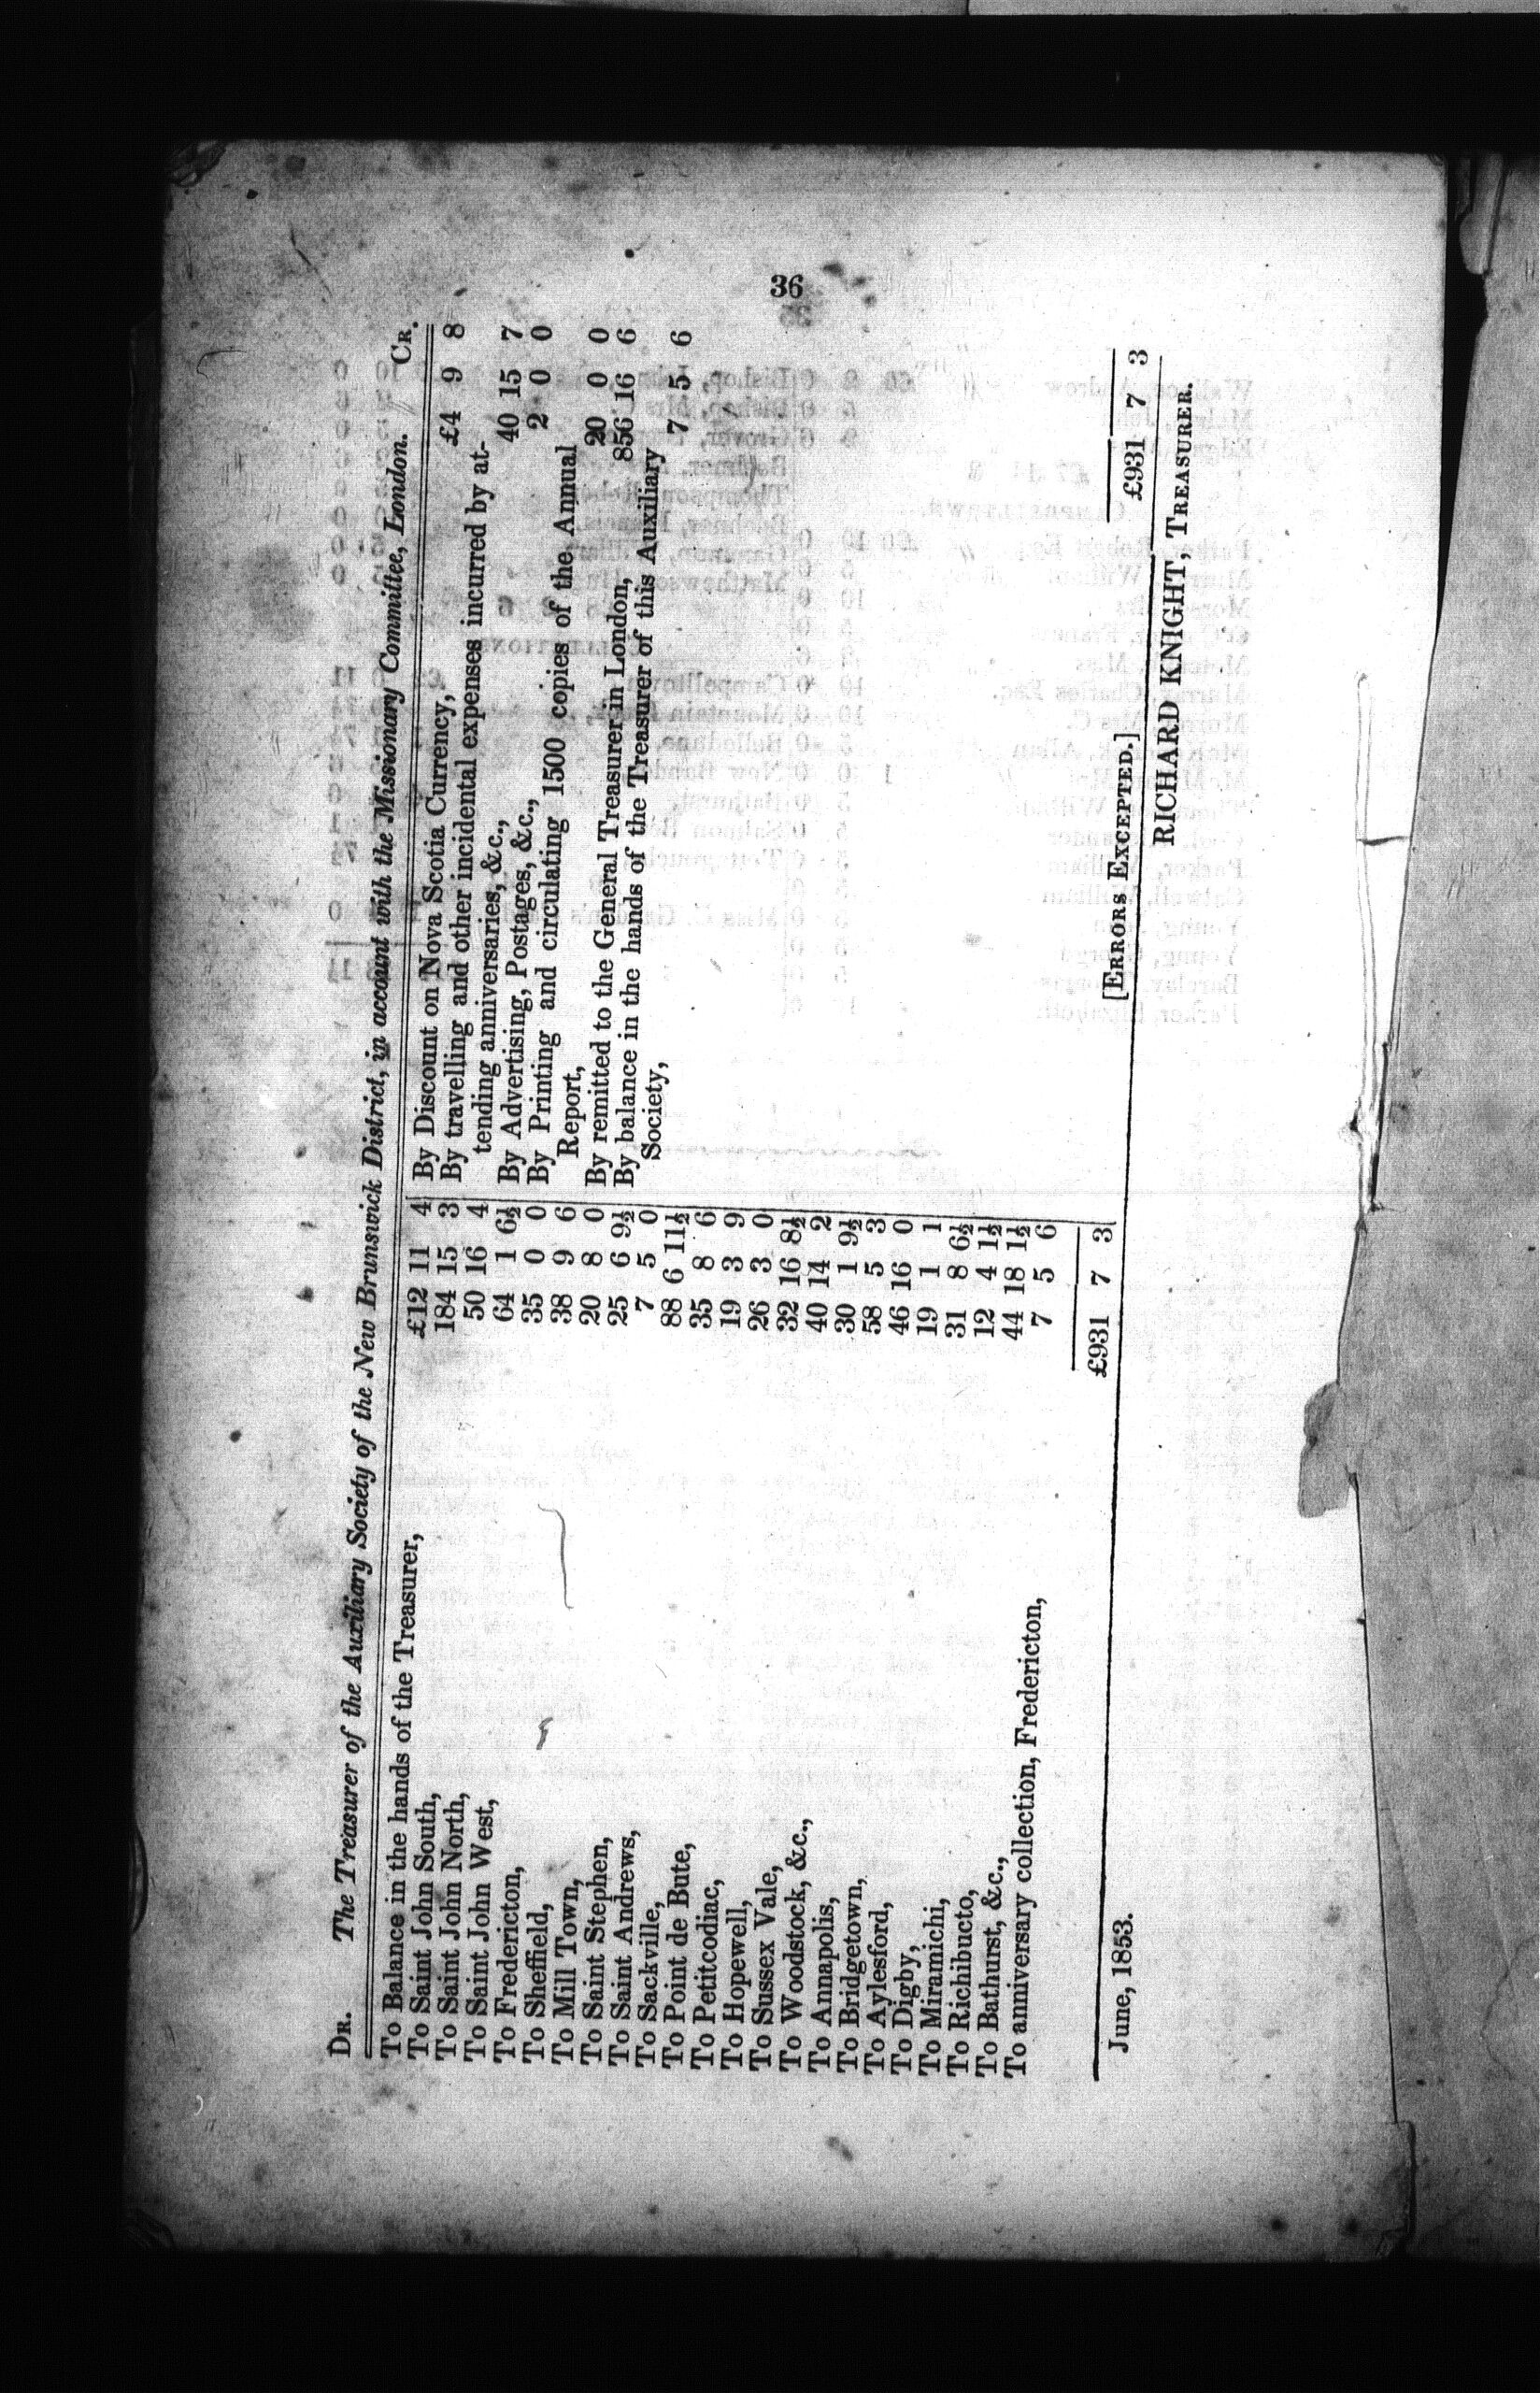 36
DR. The Treasurer of the Auxiliary Society of the New Brunswick District, in account with the Missionary Committee, London. CR.
To Balance in the hands of the Treasurer, £12 11 4
To Saint John South, 184 15 3
To Saint John North, 50 16 4
To Saint John West, 64 1 6½
To Fredericton, 35 0 0
To Sheffield, 38 9 6
To Mill Town, 20 8 0
To Saint Stephen, 25 6 9½
To Saint Andrews, 7 5 0
To Sackville, 88 6 11½
To Point de Bute, 35 8 6
To Petitcodiac, 19 3 9
To Hopewell, 26 3 0
To Sussex Vale, 32 16 8½
To Woodstock, &c., 40 14 2
To Annapolis, 30 1 9½
To Bridgetown, 58 5 3
To Aylesford, 46 16 0
To Digby, 19 1 1
To Miramichi, 31 8 6½
To Richibucto, 12 4 1½
To Bathurst, &c., 44 18 1½
To anniversary collection, Fredericton, 7 5 6
£931 7 3
By Discount on Nova Scotia Currency, £4 9 8
By travelling and other incidental expenses incurred by at-
tending anniversaries, &c., 40 15 7
By Advertising, Postages, &c., 2 0 0
By Printing and circulating 1500 copies of the Annual
Report, 20 0 0
By remitted to the General Treasurer in London, 856 16 6
By balance in the hands of the Treasurer of this Auxiliary
Society, 7 5 6
£931 7 3
June, 1853.
[ERRORS EXCEPTED.]
RICHARD KNIGHT, TREASURER.